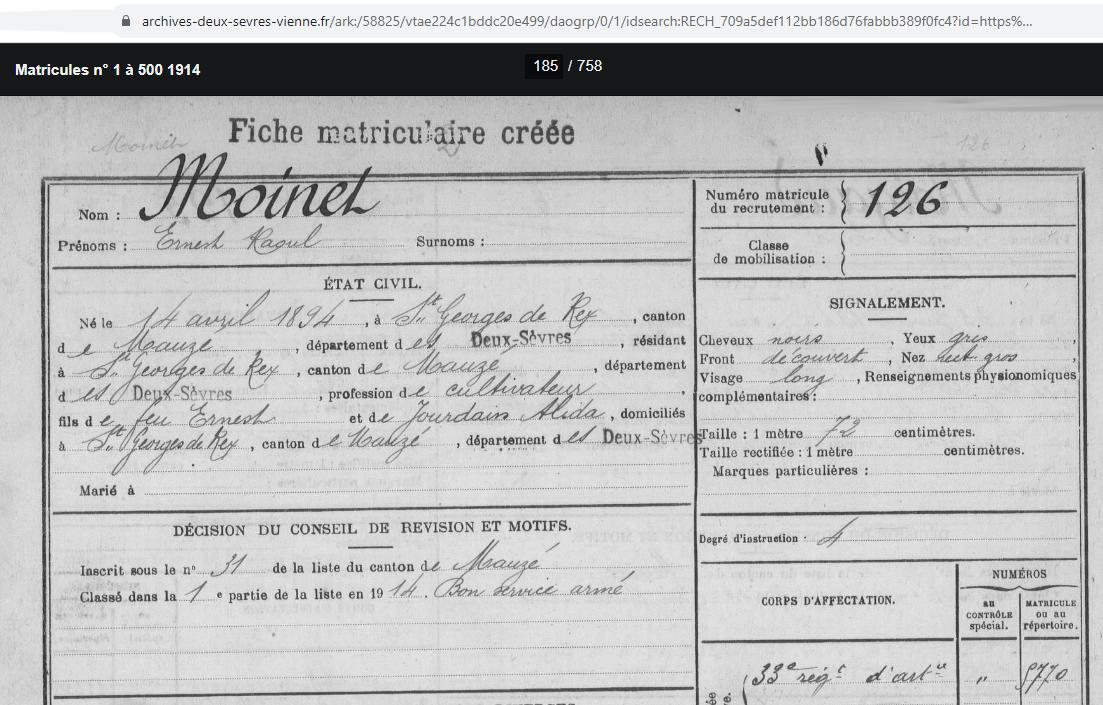 archives-deux-sevres-vienne.fr/ark:/58825/vtae224c1bddc20e499/daogrp/0/1/idsearch:RECH_709a5def112bb186d76fabbb389f0fc4?id=https%...
Matricules n° 1 à 500 1914
185 / 758
Moinet
126
Fiche matriculaire créée
Nom : Moinet
Prénoms : Ernest Raoul Surnoms :
ÉTAT CIVIL.
Né le 14 avril 1894, à St Georges de Rex, canton
de Mauzé, département des Deux-Sèvres, résidant
à St Georges de Rex, canton de Mauzé, département
des Deux-Sèvres, profession de cultivateur,
fils de feu Ernest et de Jourdain Alida, domiciliés
à St Georges de Rex, canton de Mauzé, département des Deux-Sèvres
Marié à
DÉCISION DU CONSEIL DE REVISION ET MOTIFS.
Inscrit sous le n° 31 de la liste du canton de Mauzé
Classé dans la 1e partie de la liste en 1914. Bon service armé
Numéro matricule du recrutement : 126
Classe de mobilisation :
SIGNALEMENT.
Cheveux noirs, Yeux gris,
Front découvert, Nez rect. gros,
Visage long, Renseignements physionomiques
complémentaires :
Taille : 1 mètre 72 centimètres.
Taille rectifiée : 1 mètre centimètres.
Marques particulières :
Degré d'instruction :
CORPS D'AFFECTATION.
NUMÉROS
au CONTRÔLE spécial.
MATRICULE ou au répertoire.
33e régt d'artie " 5770